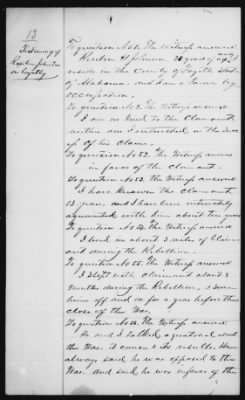 13
Testimony of
Reuben Johnston
on loyalty
To question No 1. The Witness answered
Reuben H Johnson 28 years of age I
reside in the County of Fayette State
of Alabama, and I am a Farmer by
occupation.
To question No 2. The Witness answers
I am not kin to the Claimant
neither am I interested in the
of his Claim.
To question No 52. the Witness answers
in favor of the claimant.
To question No 53. the Witness answers
I have known the Claimant
13 years, and I have been intimately
acquainted with him about ten years
To question No 54. the Witness answers
I lived in about 3 miles of Claim
ant during the Rebellion.
To question No 55. the Witness answers
I slept with claimant about 3
months during the Rebellion, & seen
him off and on for a year before the
close of the War.
To question No 56. the Witness answers
He and I talked a great deal about
the War, it causes & its results. He
always said he was opposed to the
War. and said he was in favor of the